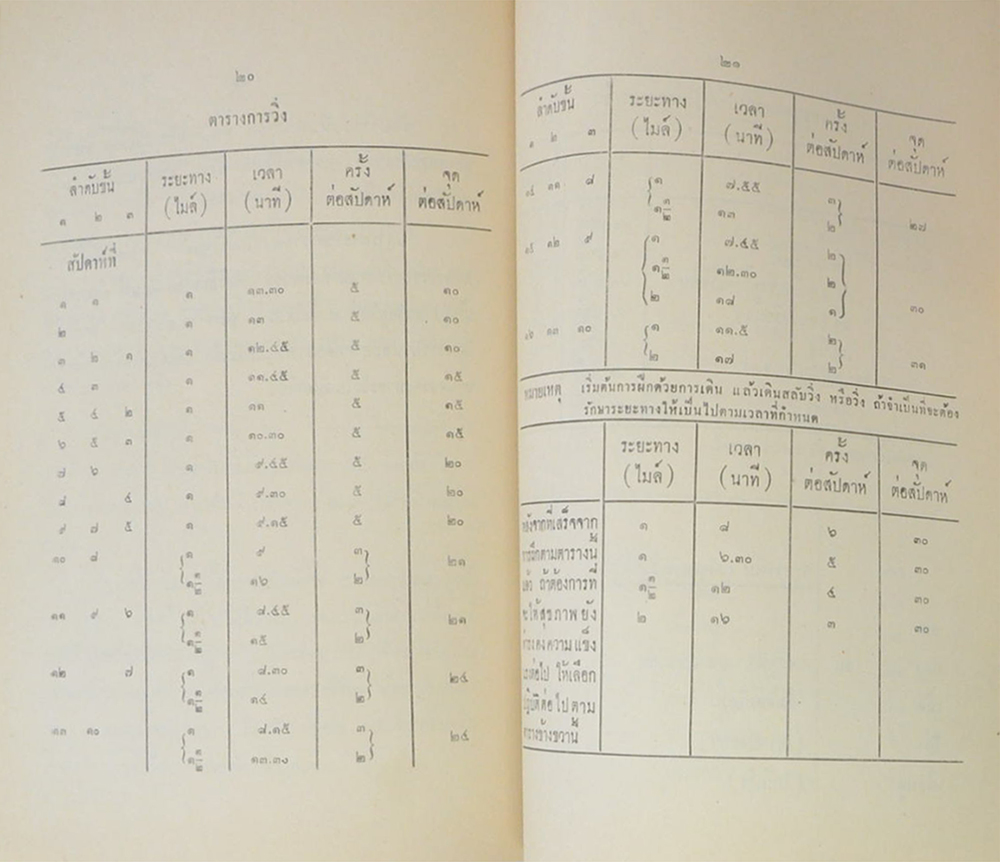 ๒๐
ตารางการวิ่ง
ลำดับขั้น ระยะทาง เวลา ครั้ง จุด
(ไมล์) (นาที) ต่อสัปดาห์ ต่อสัปดาห์
๑ ๒ ๓
สัปดาห์ที่
๑ ๑ ๑ ๑๓.๓๐ ๕ ๑๐
๒ ๑ ๑๓ ๕ ๑๐
๓ ๒ ๑ ๑ ๑๒.๔๕ ๕ ๑๐
๔ ๓ ๑ ๑๑.๔๕ ๕ ๑๕
๕ ๔ ๒ ๑ ๑๑ ๕ ๑๕
๖ ๕ ๓ ๑ ๑๐.๓๐ ๕ ๑๕
๗ ๖ ๑ ๙.๔๕ ๕ ๒๐
๘ ๔ ๑ ๙.๓๐ ๕ ๒๐
๙ ๗ ๕ ๑ ๙.๑๕ ๕ ๒๐
๑๐ ๘ { ๑ ๙ ๓ } ๒๑
๑ ๑/๒ ๑๖ ๒
๑๑ ๙ ๖ { ๑ ๘.๔๕ ๓ } ๒๑
๑ ๑/๒ ๑๕ ๒
๑๒ ๗ { ๑ ๘.๓๐ ๓ } ๒๔
๑ ๑/๒ ๑๔ ๒
๑๓ ๑๐ { ๑ ๘.๑๕ ๓ } ๒๔
๑ ๑/๒ ๑๓.๓๐ ๒
๒๑
ลำดับขั้น ระยะทาง เวลา ครั้ง จุด
๑ ๒ ๓ (ไมล์) (นาที) ต่อสัปดาห์ ต่อสัปดาห์
๑๔ ๑๑ ๘ { ๑ ๗.๕๕ ๓ } ๒๗
๑ ๑/๒ ๑๓ ๒
๑๕ ๑๒ ๙ { ๑ ๗.๔๕ ๒ }
๑ ๑/๒ ๑๒.๓๐ ๒
๒ ๑๘ ๑ ๓๐
๑๖ ๑๓ ๑๐ { ๑ ๑๑.๕ ๒ }
๒ ๑๗ ๒ ๓๑
หมายเหตุ เริ่มต้นการฝึกด้วยการเดิน แล้วเดินสลับวิ่ง หรือวิ่ง ถ้าจำเป็นที่จะต้อง
รักษาระยะทางให้เป็นไปตามเวลาที่กำหนด
ระยะทาง เวลา ครั้ง จุด
(ไมล์) (นาที) ต่อสัปดาห์ ต่อสัปดาห์
หลังจากที่เสร็จจาก ๑ ๘ ๖ ๓๐
การฝึกตามตารางนี้ ๑ ๖.๓๐ ๕ ๓๐
แล้ว ถ้าต้องการที่ ๑ ๑/๒ ๑๒ ๔ ๓๐
จะให้สุขภาพ ยัง ๒ ๑๖ ๓ ๓๐
ดำรงคงความแข็ง
แรงต่อไป ให้เลือก
ปฏิบัติต่อไปตาม
ตารางข้างขวานี้